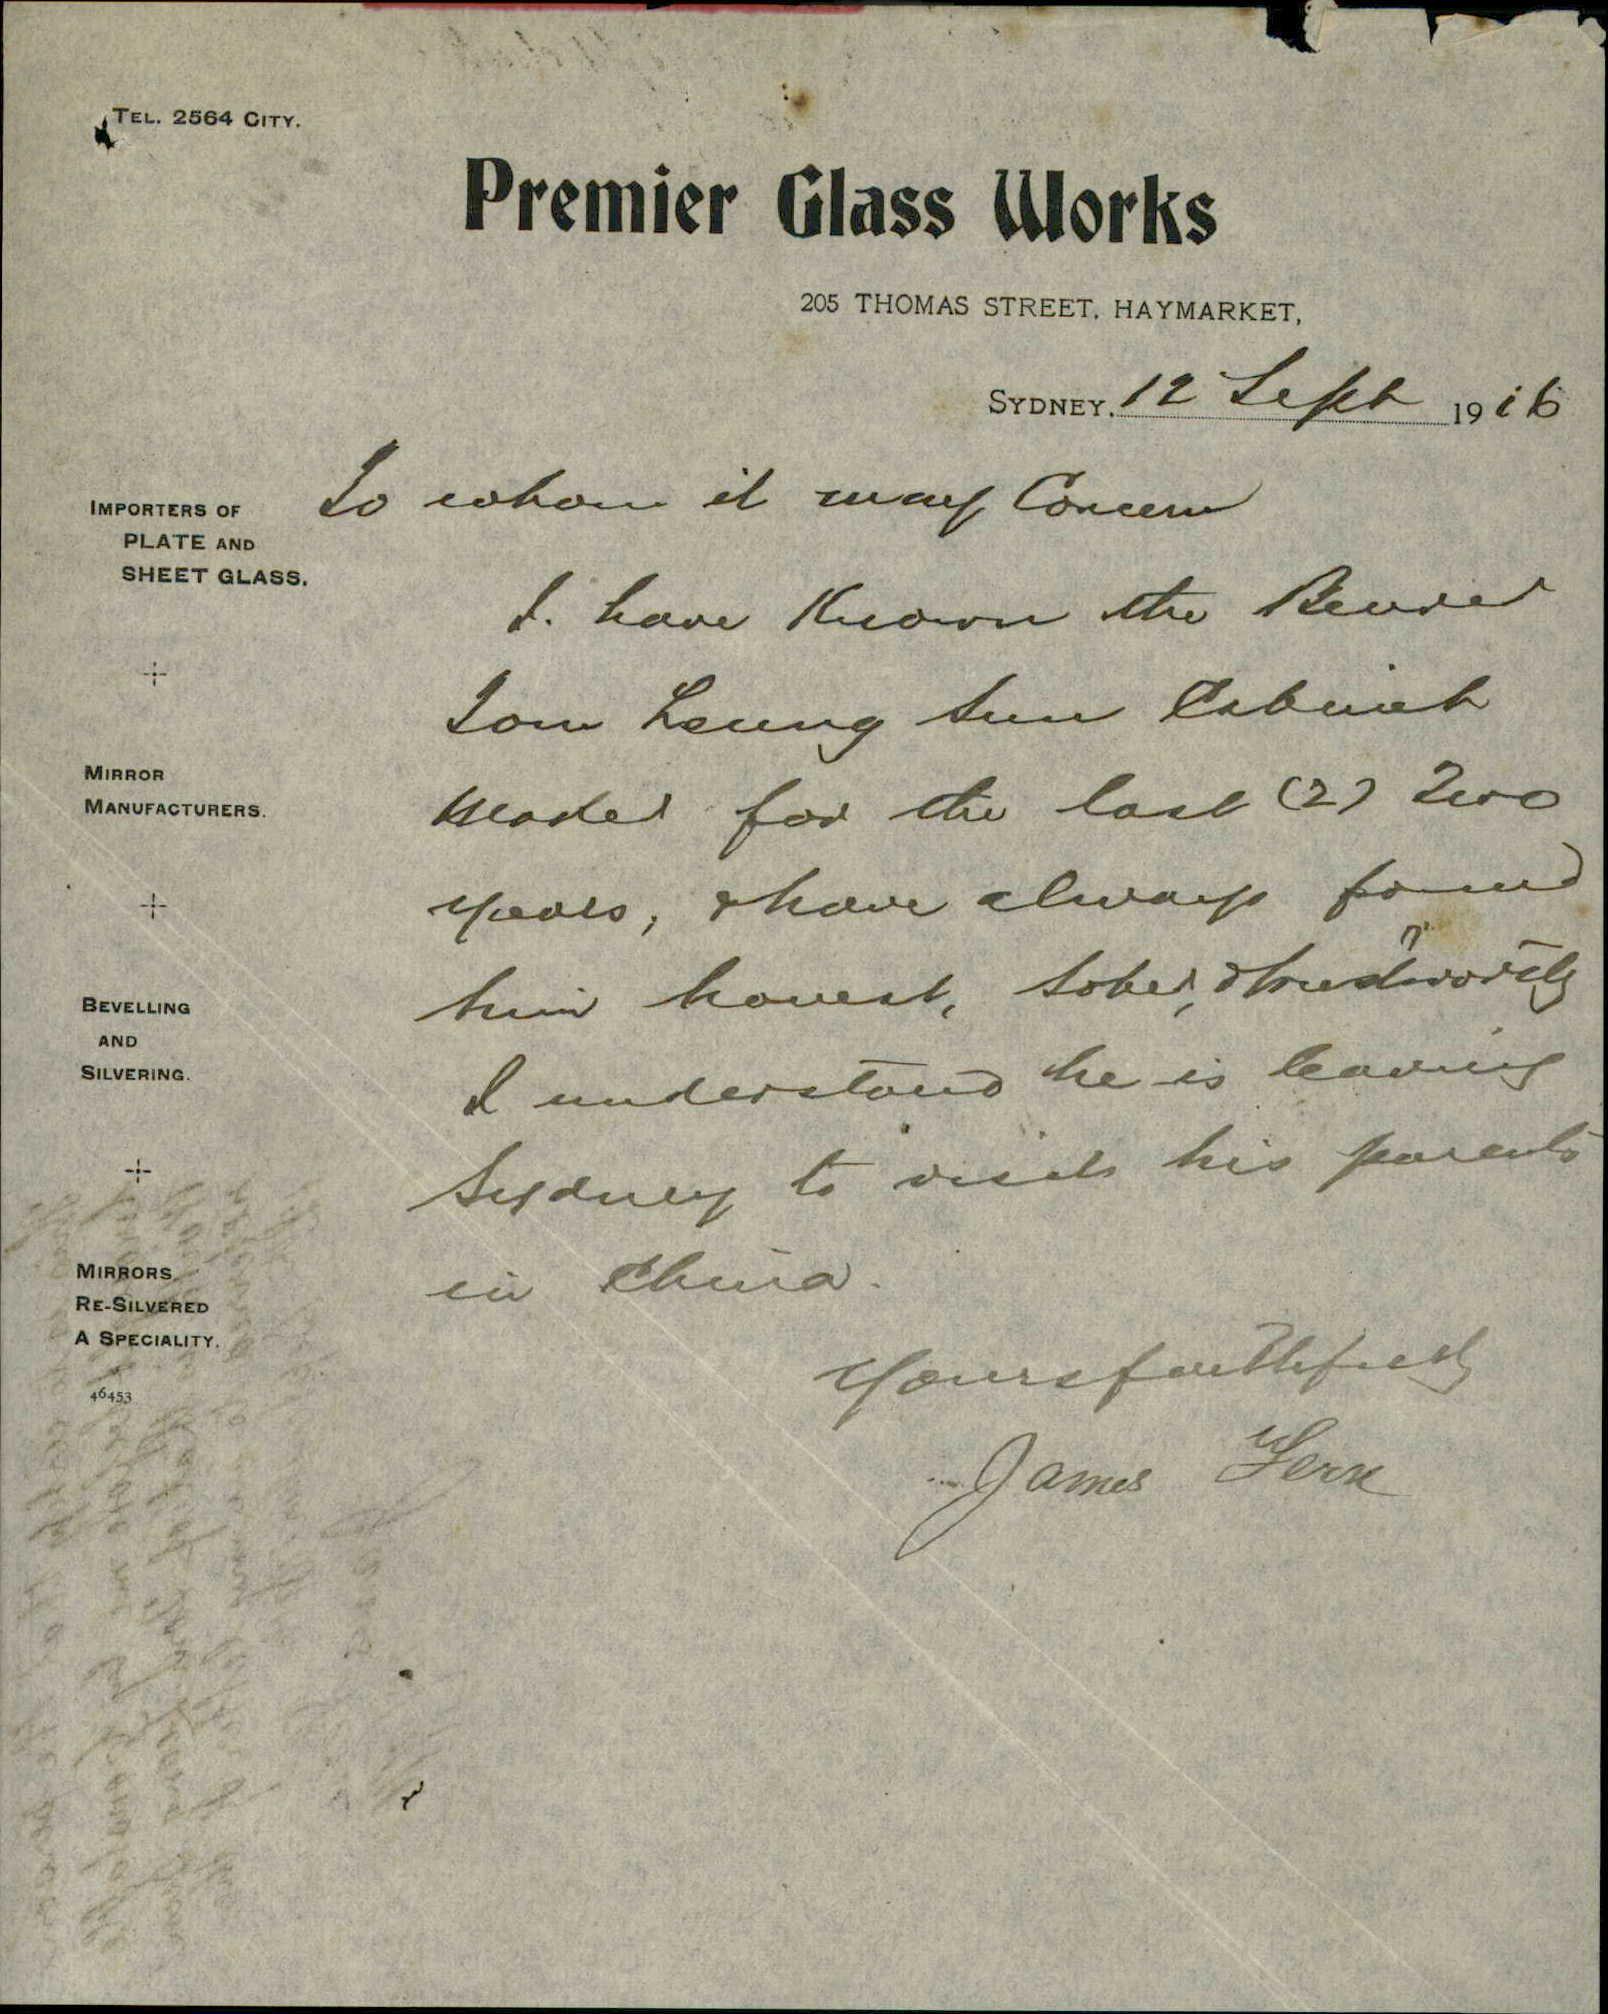 TEL. 2564 CITY.
Premier Glass Works
205 THOMAS STREET, HAYMARKET,
SYDNEY, 12 Sept 1916
To whom it may Concern
IMPORTERS OF
PLATE AND
SHEET GLASS.
MIRROR
MANUFACTURERS.
BEVELLING
AND
SILVERING.
MIRRORS
RE-SILVERED
A SPECIALITY.
46453
I. have Known the Bearer
Tom Leung Sun Cabinet
Maker for the last (2) Two
years, & have always found
him honest, Sober, & trustworthy
I understand he is leaving
Sydney to visit his parents
in China.
Yours faithfully
James